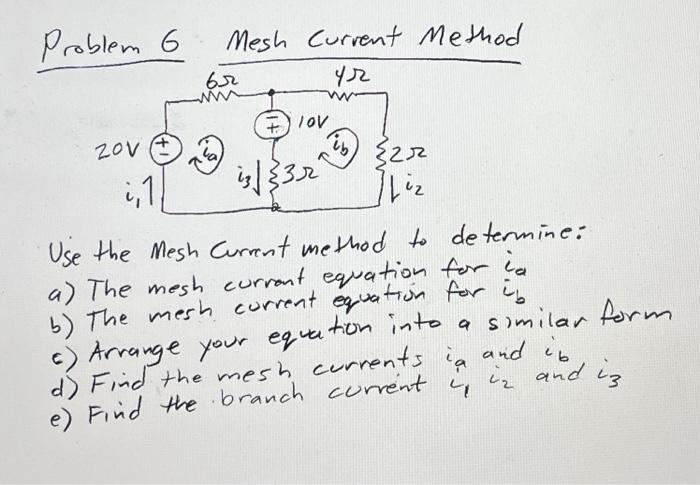 Problem 6 Mesh Current Method
6Ω 4Ω
10V
20V ia ib 2Ω
i1 i3 3Ω i2
Use the Mesh Current method to determine:
a) The mesh current equation for ia
b) The mesh current equation for ib
c) Arrange your equation into a similar form
d) Find the mesh currents ia and ib
e) Find the branch current i1 i2 and i3